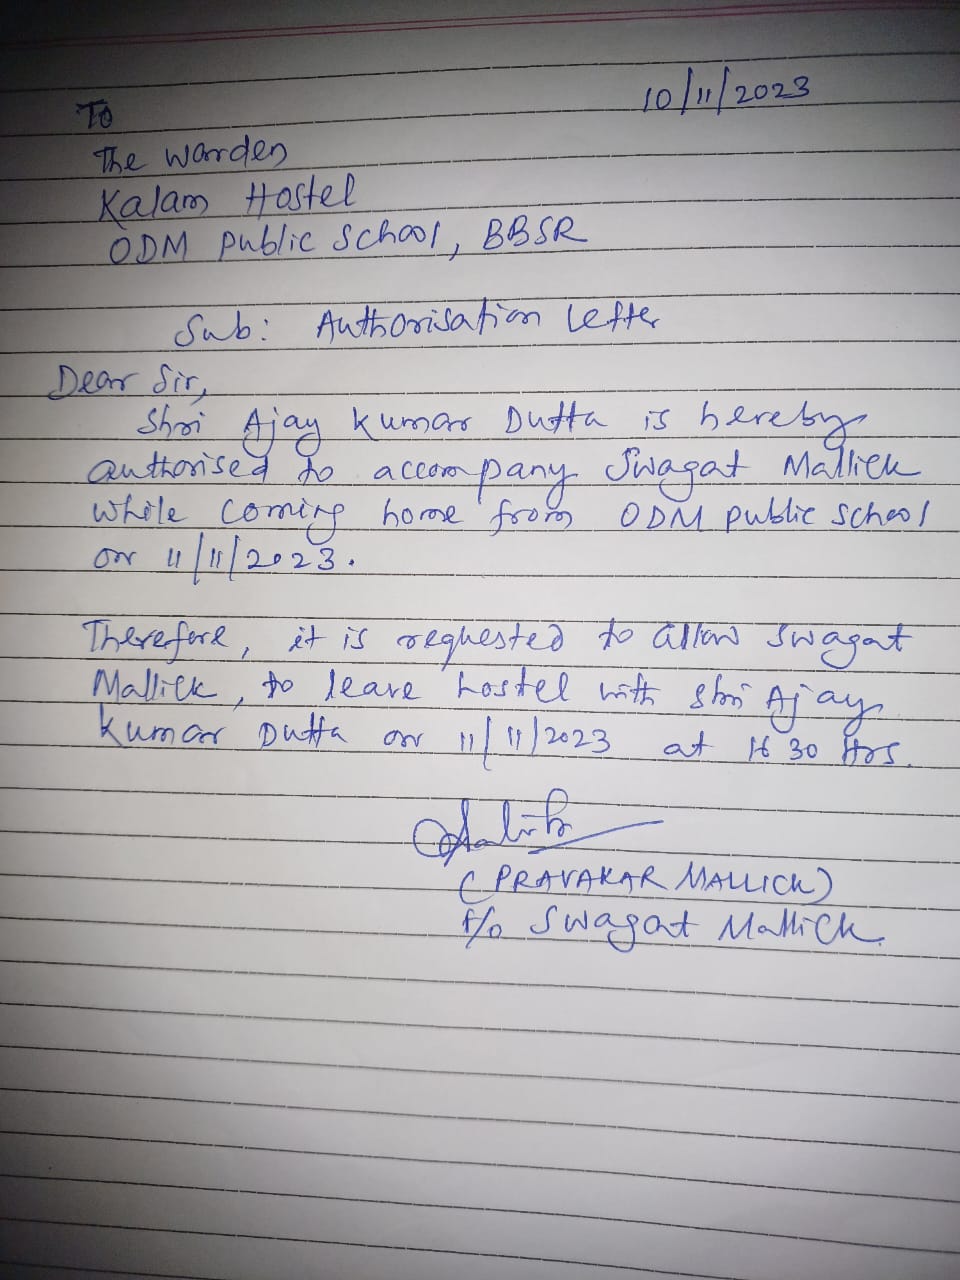 To
10/11/2023
The Warden
Kalam Hostel
ODM Public School, BBSR
Sub: Authorisation Letter
Dear Sir,
Shri Ajay Kumar Dutta is hereby
authorised to accompany Swagat Mallick
while coming home from ODM Public School
on 11/11/2023.
Therefore, it is requested to allow Swagat
Mallick, to leave hostel with Shri Ajay
Kumar Dutta on 11/11/2023 at 16 30 Hrs.
(PRAVAKAR MALLICK)
F/o Swagat Mallick.